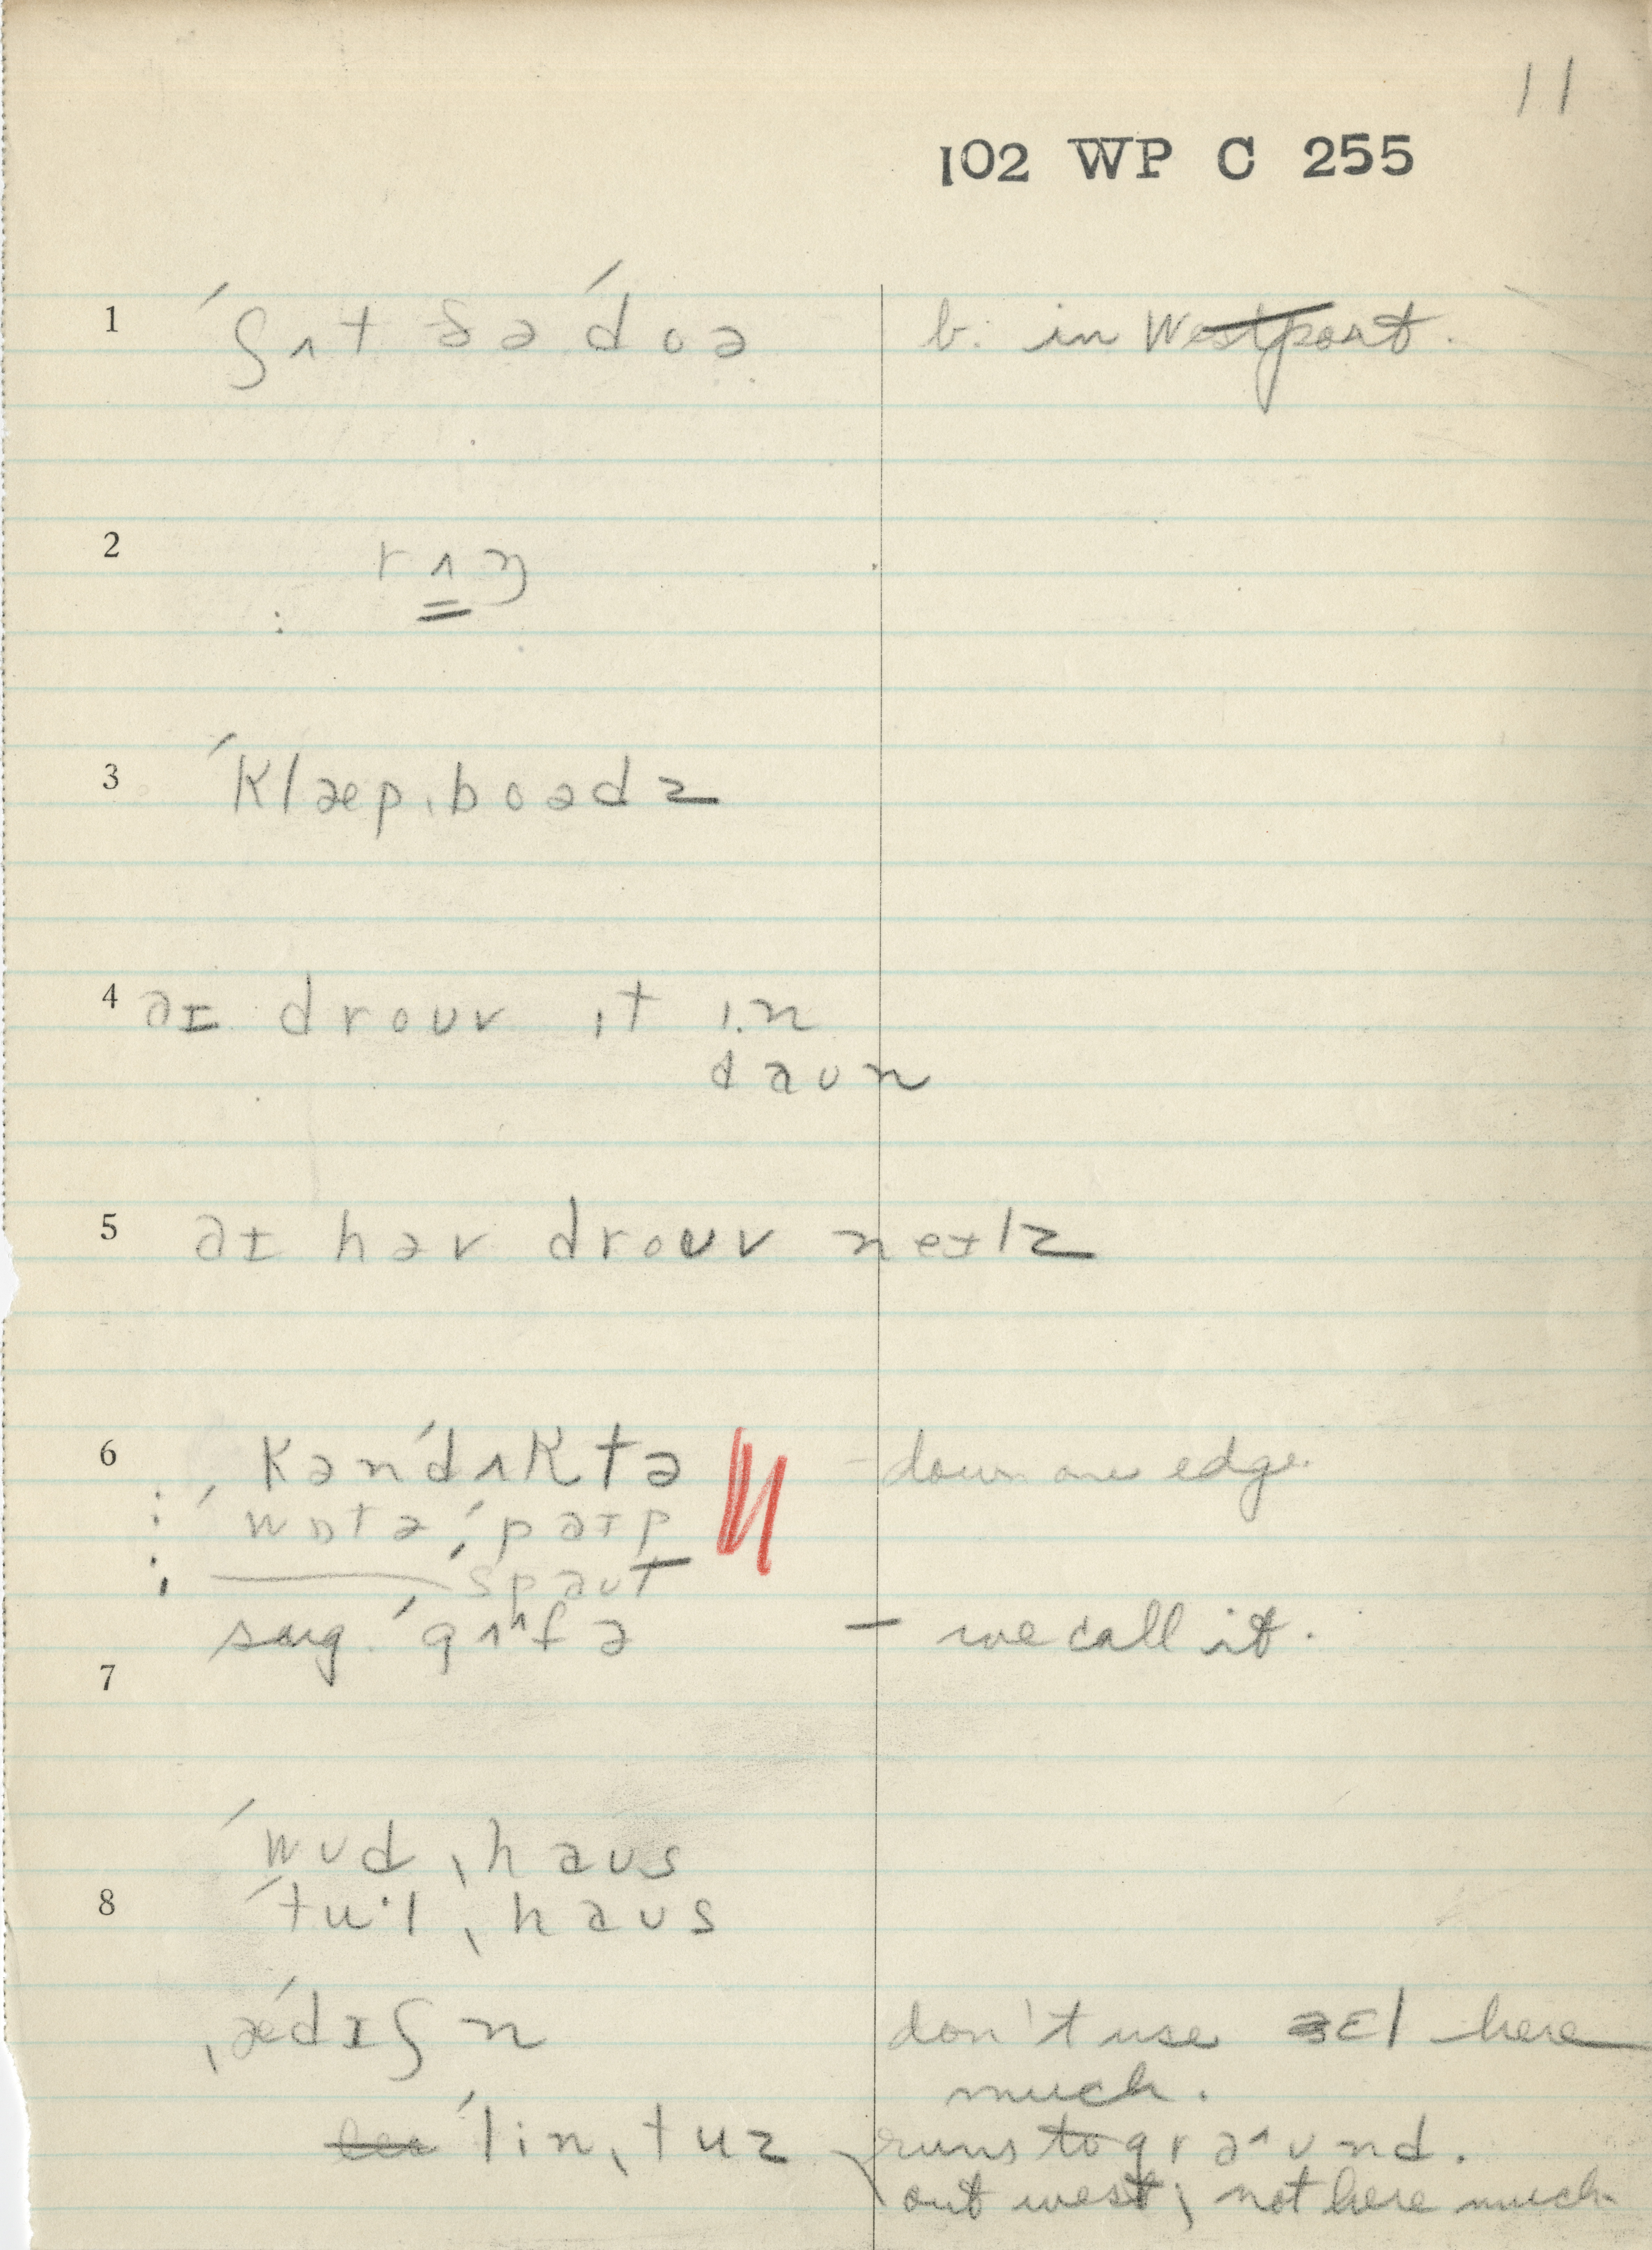 11
102 WP C 255
1 ˈʃʌt ðə ˈdoə b. in Westport.
2 rʌŋ
3 ˈklæpˌboədz
4 aɪ droʊv ɪt ɪn
daʊn
5 aɪ həv droʊv neɪlz
6 kənˈdʌktə - down one edge.
ˈwɒtəˌpaɪp
spaʊt
sug. ˈgʌʰfə — we call it.
7
ˈwʊdˌhaʊs
8 ˈtu·lˌhaʊs
ˌæˈdɪʃn don't use ɛl here
much.
ˈlinˌtuz runs to graʌʊnd.
out west, not here much.